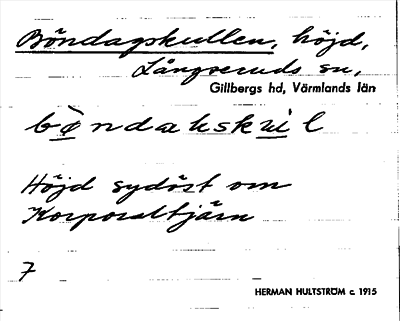 Böndagskullen, höjd,
Långseruds sn,
Gillbergs hd, Värmlands län
bòndakskul
Höjd sydöst om
Korporaltjärn
7
HERMAN HULTSTRÖM c. 1915